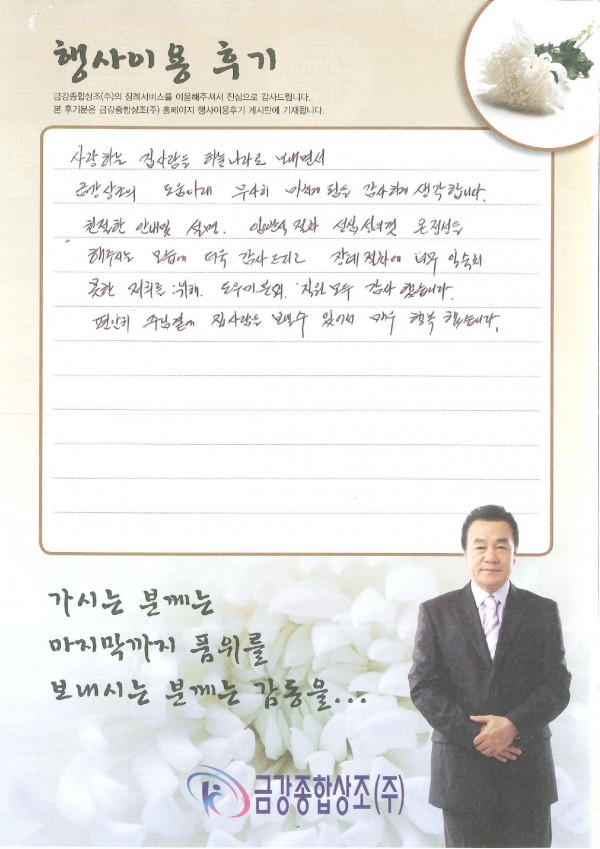 행사이용 후기
금강종합상조(주)의 장례서비스를 이용해주셔서 진심으로 감사드립니다.
본 후기분은 금강종합상조(주) 홈페이지 행사이용후기 게시판에 기재됩니다.
사랑하는 집사람을 하늘나라로 보내면서
금강상조의 도움아래 무사히 마치게 됨을 감사하게 생각합니다.
친절한 안내및 설명. 절차 성심성의껏 온정성을
해주시는 모습에 더욱 감사드리고 장례절차에 너무 익숙치
못한 저희를 위해. 도우미분외. 직원모두 감사했습니다.
편안히 주님곁에 집사람을 보낼수 있어서 매우 행복했습니다.
가시는 분께는
마지막까지 품위를
보내시는 분께는 감동을...
금강종합상조(주)